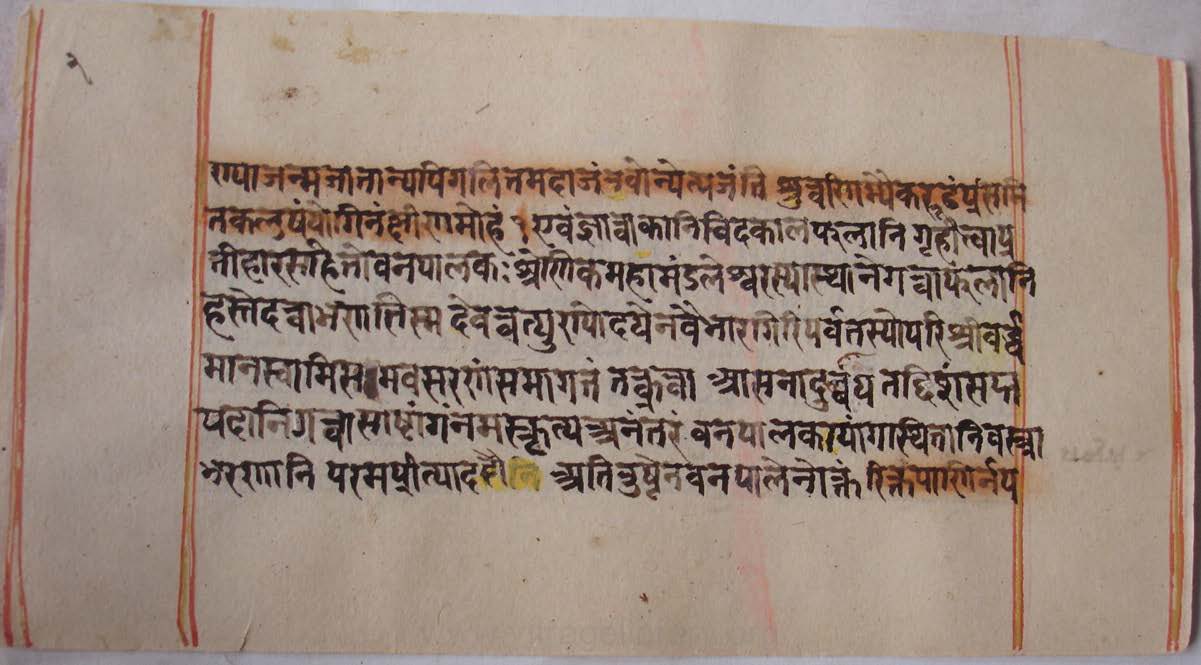 २
राण्याजन्मजातान्यपिगलितमदाजंतवोन्येत्यजंति श्रुत्वरिगम्यैकरूढंप्रसमि
तकलुषंयोगिनंक्षीणमोहं १ एवंज्ञात्वाकानिविदकालफलानि गृहीत्वाप्र
तीहारसहितोवनपालकः श्रेणिकमहामंडलेश्वरस्यास्थानेगत्वाफलानि
हस्तेदत्वाभणतिस्म देवत्वत्पुण्योदयेनवैभारगिरिपर्वतस्योपरिश्रीवर्द्ध
मानस्वामिसमवसरणंसमागतं तछ्रुत्वा आसनादुर्च्छाय तद्दिशंसप्त
पदानिगत्वासाष्टांगंनमस्कृत्यअनंतरं वनपालकायांगस्थितानिवस्त्रा
भरणानि परमप्रीत्याददौ अतितुष्टेनवनपालेनोक्तं रिक्तपाणिर्नप